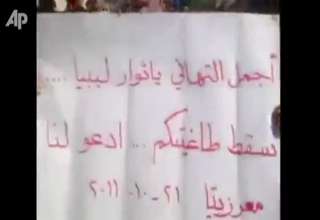 AP
أجمل التهاني ياثوار ليبيا ....
سقط طاغيتكم ... ادعو لنا
معرزيتا
٢١ - ١٠ - ٢٠١١